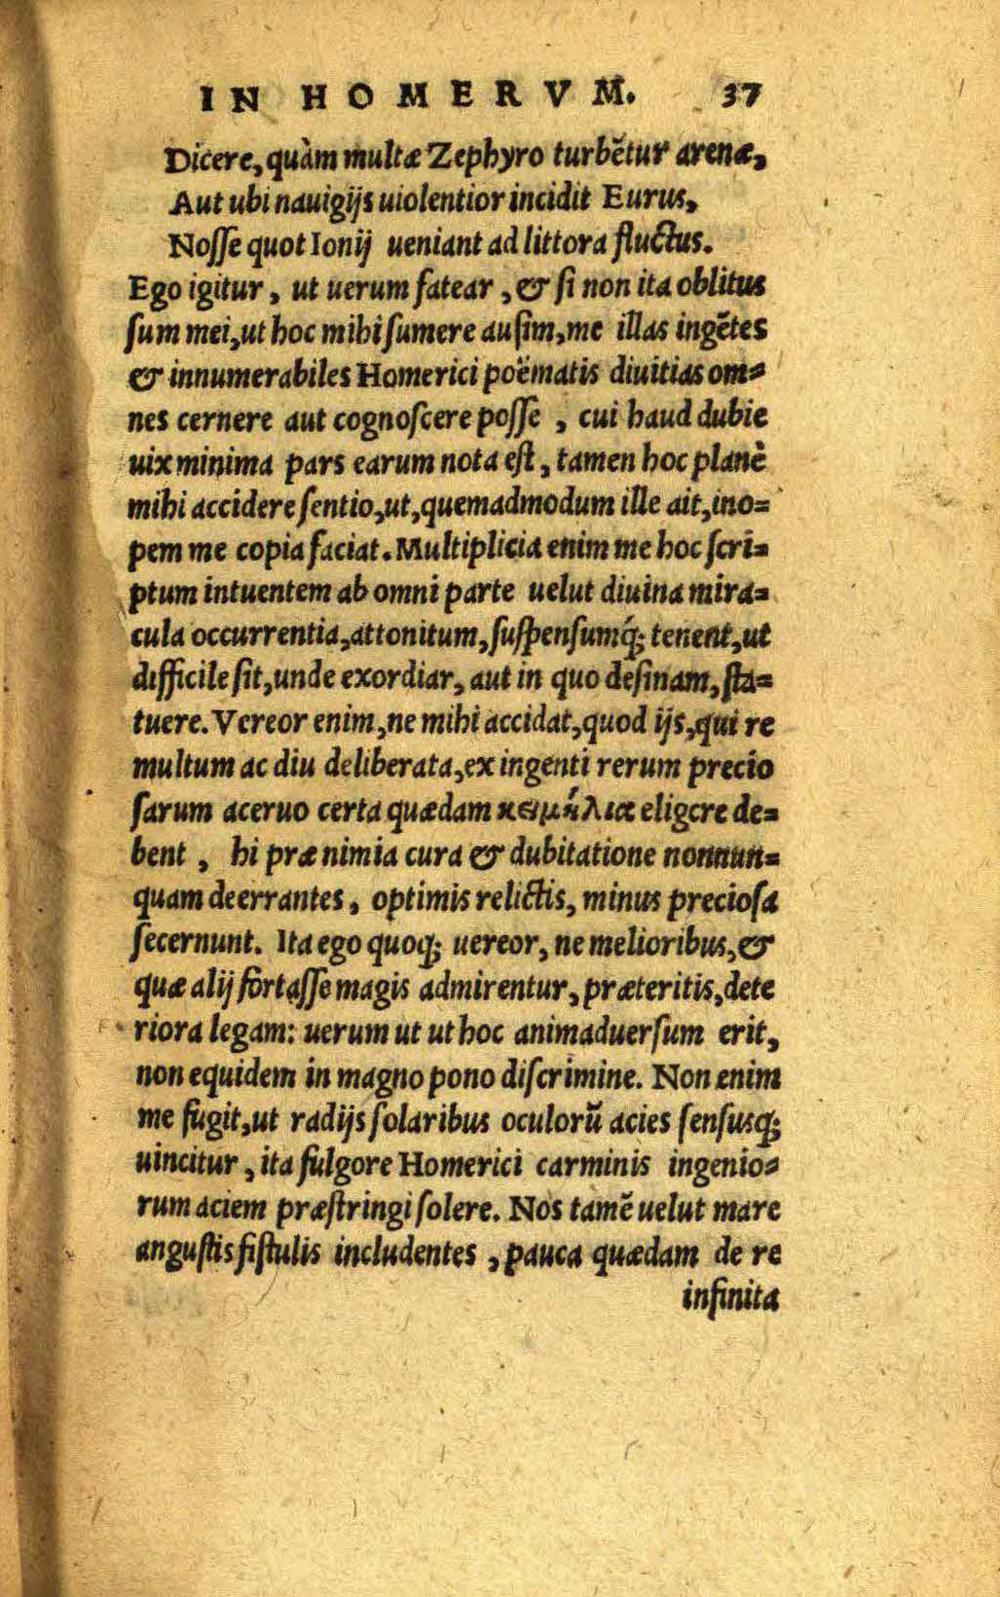 IN HOMERVM. 37
Dicere, quàm multæ Zephyro turbẽtur arenæ,
Aut ubi nauigijs uiolentior incidit Eurus,
Nosse quot Ionij ueniant ad littora fluctus.
Ego igitur, ut uerum fatear, & si non ita oblitus
sum mei, ut hoc mihi sumere ausim, me illas ingẽtes
& innumerabiles Homerici poëmatis diuitias om=
nes cernere aut cognoscere posse, cui haud dubie
uix minima pars earum nota est, tamen hoc planè
mihi accidere sentio, ut, quemadmodum ille ait, ino=
pem me copia faciat. Multiplicia enim me hoc scri=
ptum intuentem ab omni parte uelut diuina mira=
cula occurrentia, attonitum, suspensumq́; tenent, ut
difficile sit, unde exordiar, aut in quo desinam, sta=
tuere. Vereor enim, ne mihi accidat, quod ijs, qui re
multum ac diu deliberata, ex ingenti rerum precio
sarum aceruo certa quædam κειμήλια eligere de=
bent, hi præ nimia cura & dubitatione nonnun=
quam deerrantes, optimis relictis, minus preciosa
secernunt. Ita ego quoq; uereor, ne melioribus, &
quæ alij fortasse magis admirentur, præteritis, dete
riora legam: uerum ut ut hoc animaduersum erit,
non equidem in magno pono discrimine. Non enim
me fugit, ut radijs solaribus oculorũ acies sensusq;
uincitur, ita fulgore Homerici carminis ingenio=
rum aciem præstringi solere. Nos tamẽ uelut mare
angustis fistulis includentes, pauca quædam de re
infinita